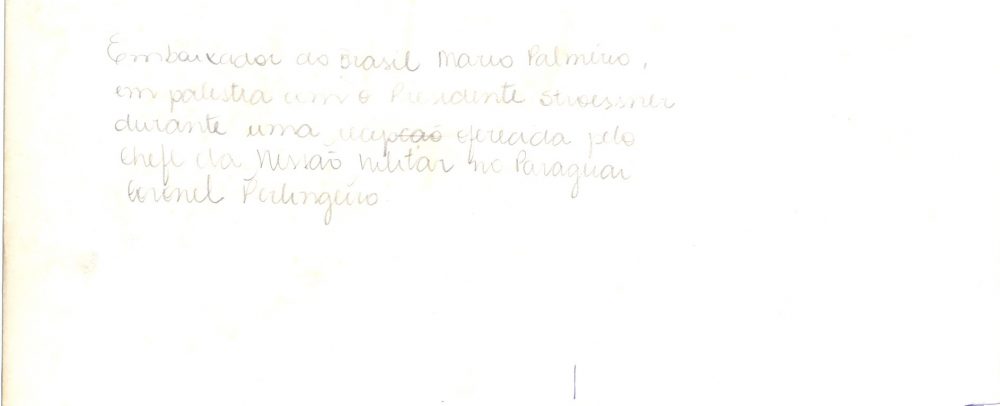 Embaixador do Brasil Mario Palmério,
em palestra com o Presidente Stroessner
durante uma recepcão oferecida pelo
Chefe da Missão Militar no Paraguai
Coronel Perlingeiro